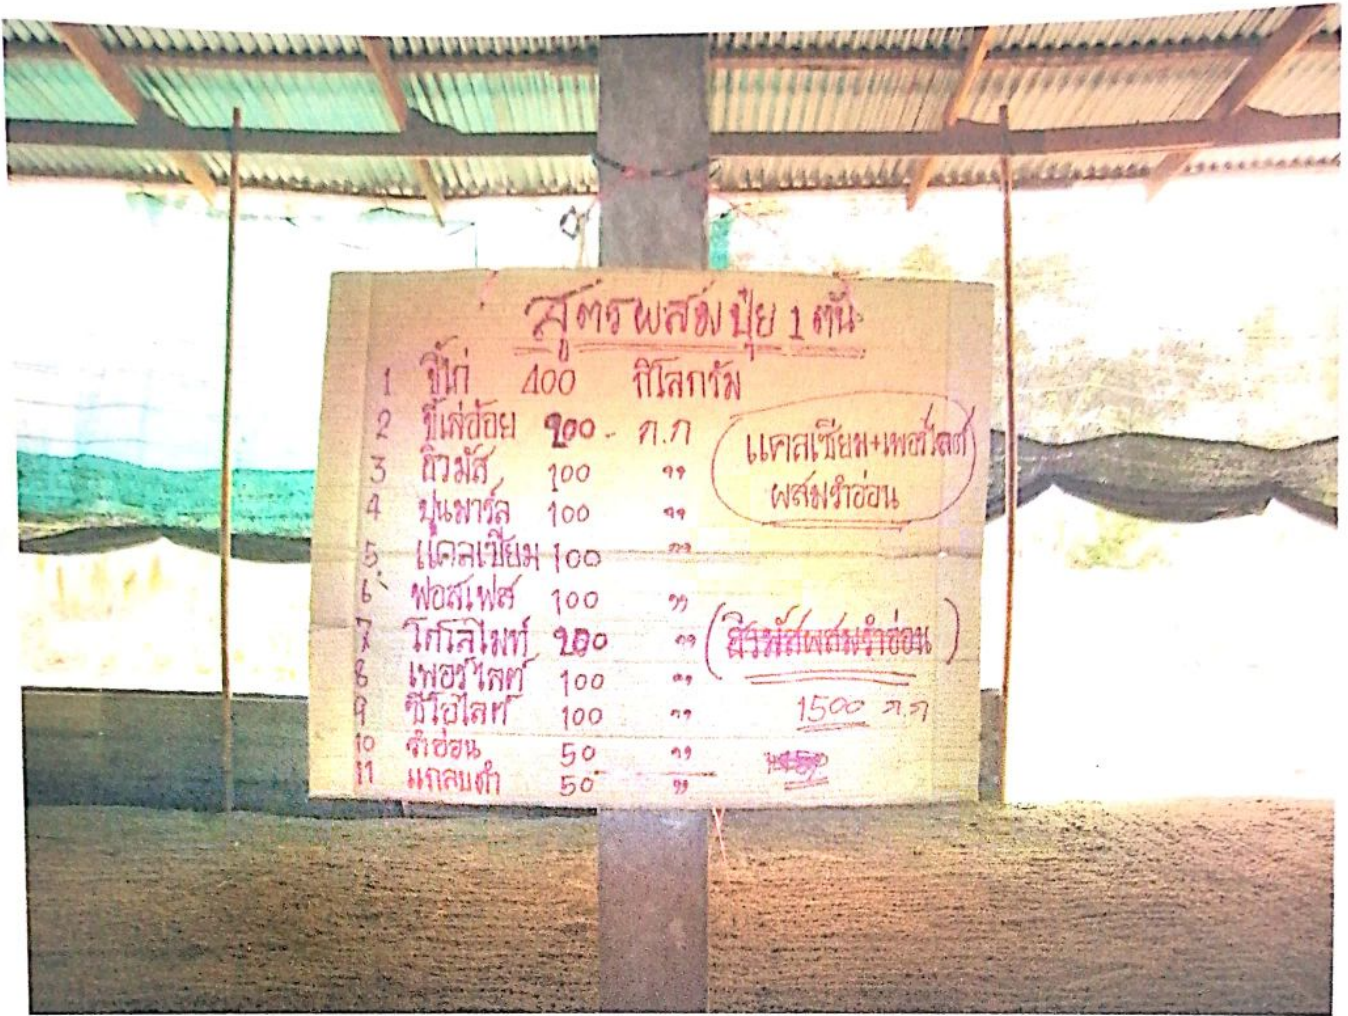 สูตรผสมปุ๋ย 1 ตัน
1 ขี้ไก่ 400 กิโลกรัม
2 ขี้เล่อ้อย 200 - ก.ก
3 ฮิวมัส 100 "
4 ปูนมาร์ล 100 "
5. แคลเซียม 100 "
6 ฟอสเฟส 100 "
7 โดโลไมท์ 200 "
8 เพอร์ไลต์ 100 "
9 ซีโอไลท์ 100 "
10 รำอ่อน 50 "
11 แกลบดำ 50 "
แคลเซียม+เพอร์ไลต์
ผสมรำอ่อน
(ฮิวมัสผสมรำอ่อน)
1500 ก.ก